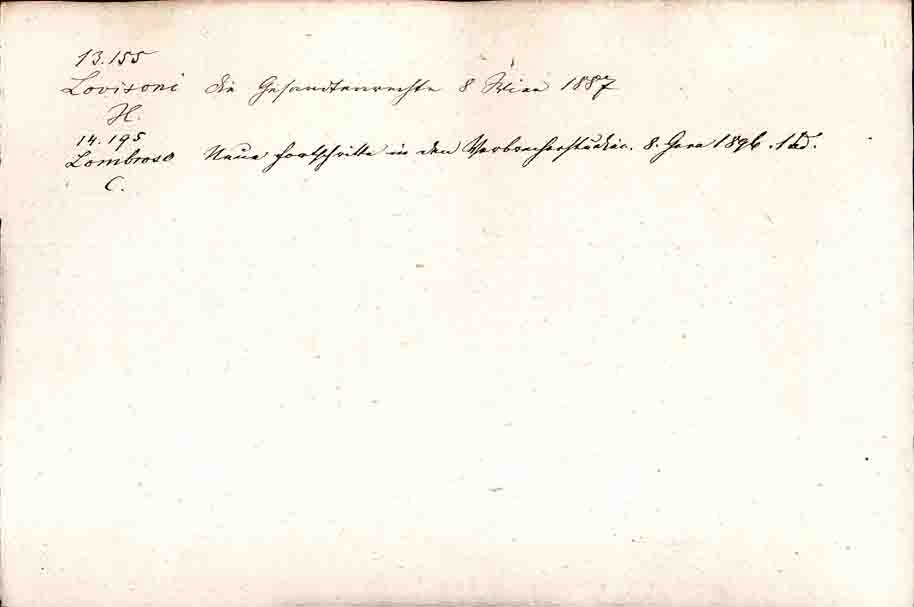 13.155
Lovisoni die Gesandtenrechte 8 Wien 1887
H.
14.195
Lombroso Neue Fortschritte in den Verbrecherstudien. 8. Gera 1896. 1 Bd.
C.